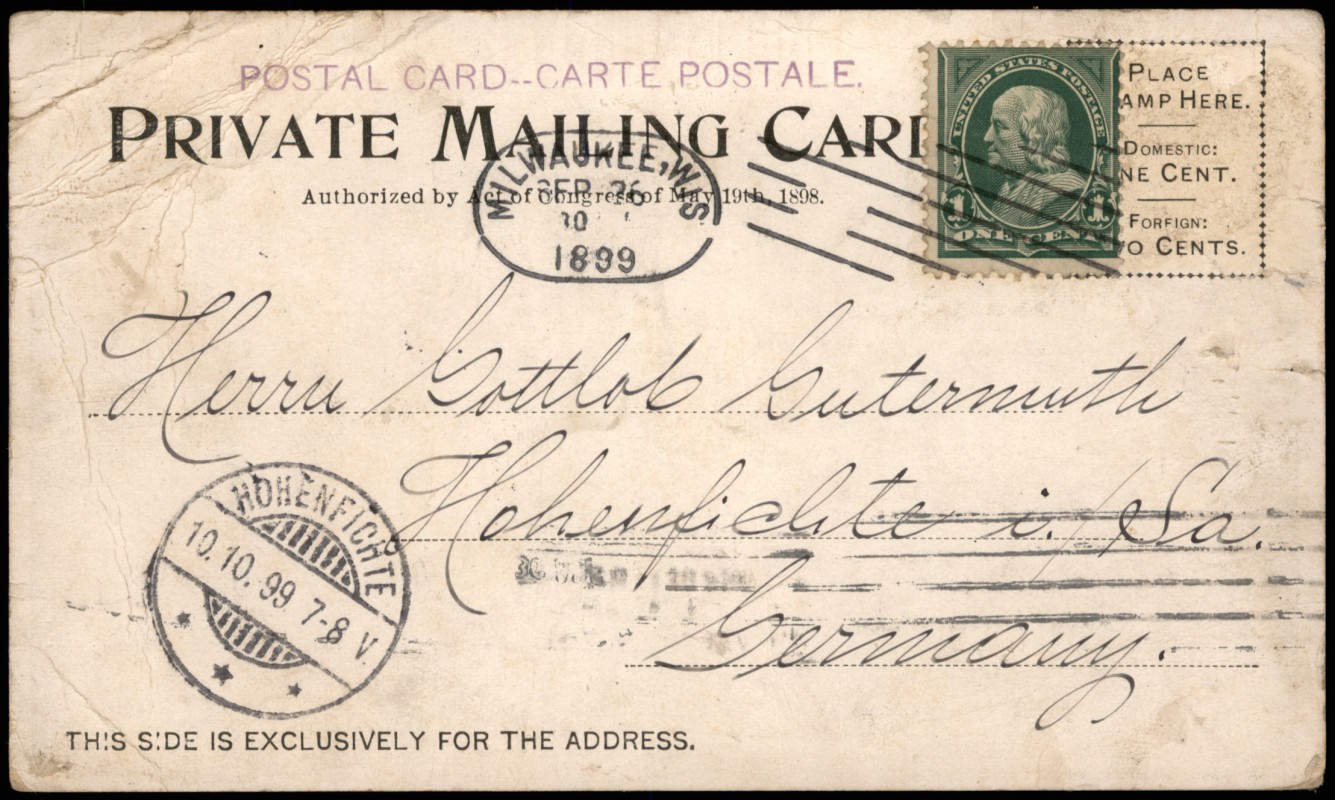 POSTAL CARD--CARTE POSTALE.
PRIVATE MAILING CARD
Authorized by Act of Congress of May 19th, 1898.
MILWAUKEE, WIS
SEP 26
30
1899
UNITED STATES POSTAGE
1 1
ONE CENT
PLACE
AMP HERE.
DOMESTIC:
NE CENT.
FORFIGN:
O CENTS.
Herrn Gottlob Gutermuth
Hohenfichte i./Sa.
Germany.
HOHENFICHTE
10.10.99 7-8 V.
THIS SIDE IS EXCLUSIVELY FOR THE ADDRESS.